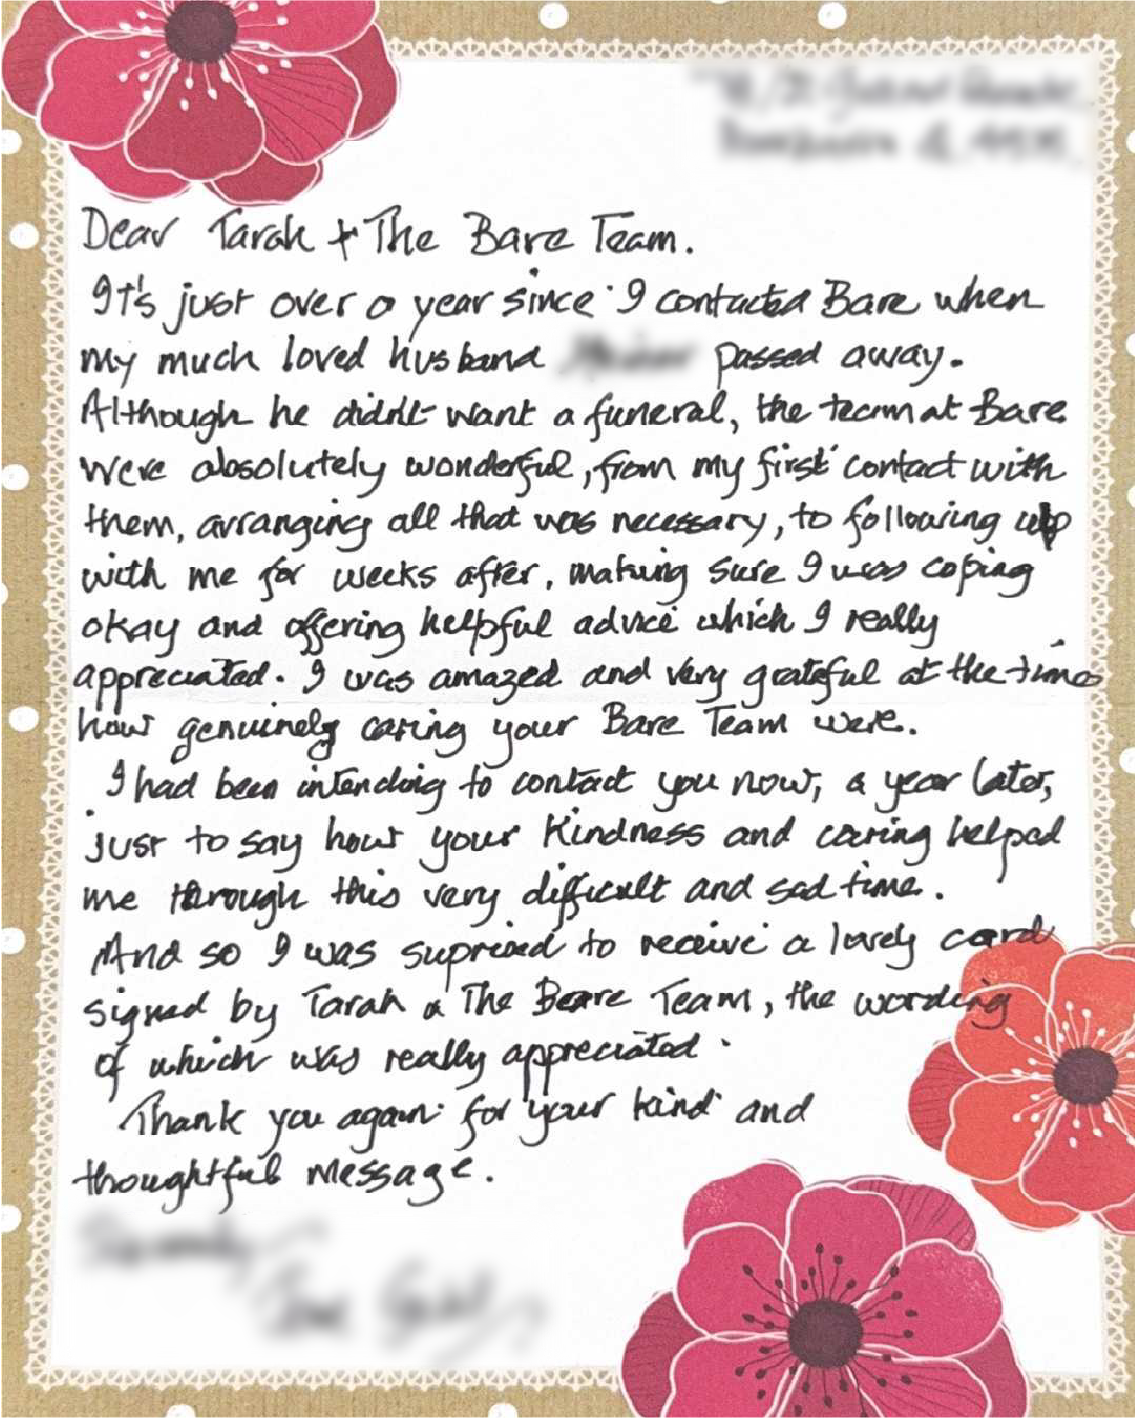 Dear Tarah + The Bare Team.
It's just over a year since I contacted Bare when
my much loved husband passed away.
Although he didn't want a funeral, the team at Bare
were absolutely wonderful, from my first contact with
them, arranging all that was necessary, to following up
with me for weeks after, making sure I was coping
okay and offering helpful advice which I really
appreciated. I was amazed and very grateful at the time
how genuinely caring your Bare Team were.
I had been intending to contact you now, a year later,
just to say how your kindness and caring helped
me through this very difficult and sad time.
And so I was suprised to receive a lovely card
signed by Tarah & The Bare Team, the wording
of which was really appreciated.
Thank you again for your kind and
thoughtful message.